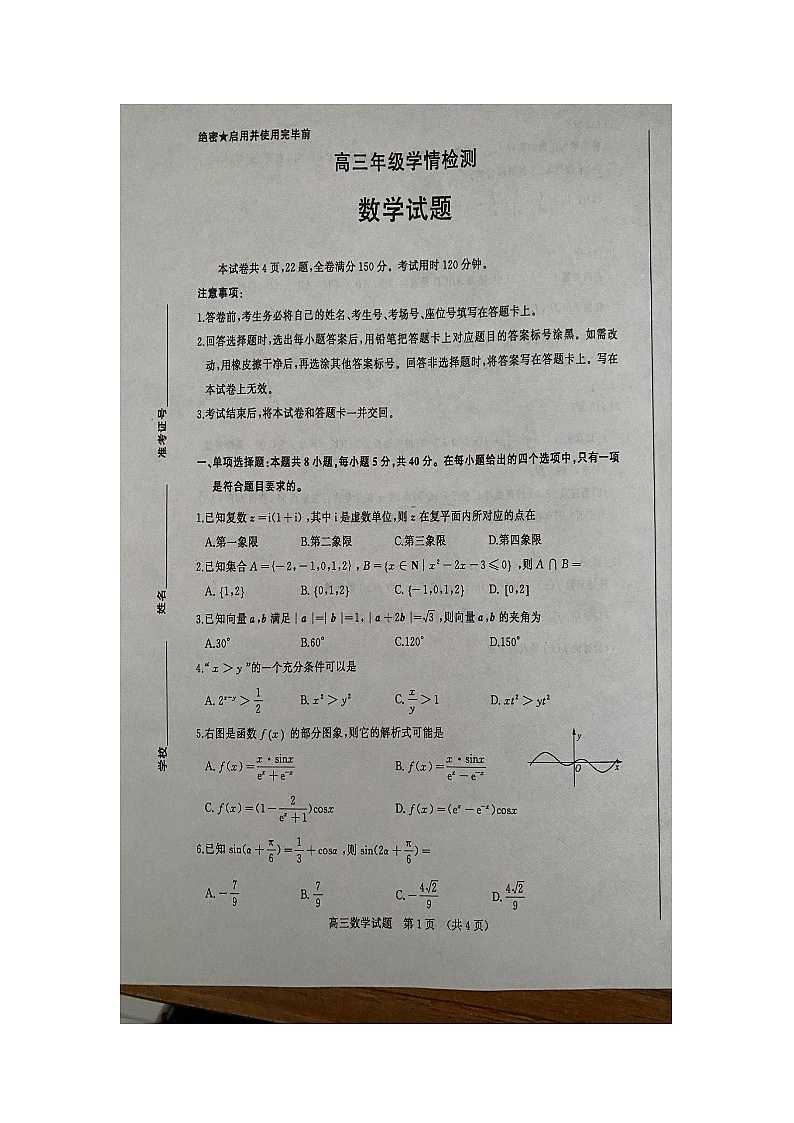 绝密★启用并使用完毕前
高三年级学情检测
数学试题
本试卷共4页,22题,全卷满分150分。考试用时120分钟。
注意事项:
1.答卷前,考生务必将自己的姓名、考生号、考场号、座位号填写在答题卡上。
2.回答选择题时,选出每小题答案后,用铅笔把答题卡上对应题目的答案标号涂黑。如需改
动,用橡皮擦干净后,再选涂其他答案标号。回答非选择题时,将答案写在答题卡上。写在
本试卷上无效。
3.考试结束后,将本试卷和答题卡一并交回。
准考证号
姓名
学校
一、单项选择题:本题共8小题,每小题5分,共40分。在每小题给出的四个选项中,只有一项
是符合题目要求的。
1.已知复数 z=i(1+i),其中i是虚数单位,则 z̄ 在复平面内所对应的点在
A.第一象限 B.第二象限 C.第三象限 D.第四象限
2.已知集合 A={-2,-1,0,1,2},B={x∈N|x²-2x-3⩽0},则 A∩B=
A.{1,2} B.{0,1,2} C.{-1,0,1,2} D.[0,2]
3.已知向量 a,b 满足|a|=|b|=1,|a+2b|=√3,则向量 a,b 的夹角为
A.30° B.60° C.120° D.150°
4.“x>y”的一个充分条件可以是
A. 2^{x-y}>1/2 B. x²>y² C. x/y>1 D. xt²>yt²
5.右图是函数 f(x) 的部分图象,则它的解析式可能是
A. f(x)=(x·sinx)/(e^x+e^{-x}) B. f(x)=(x·sinx)/(e^x-e^{-x})
y
O x
C. f(x)=(1-2/(e^x+1))cosx D. f(x)=(e^x-e^{-x})cosx
6.已知 sin(α+π/6)=1/3+cosα,则 sin(2α+π/6)=
A.-7/9 B.7/9 C.-4√2/9 D.4√2/9
高三数学试题 第1页 (共4页)